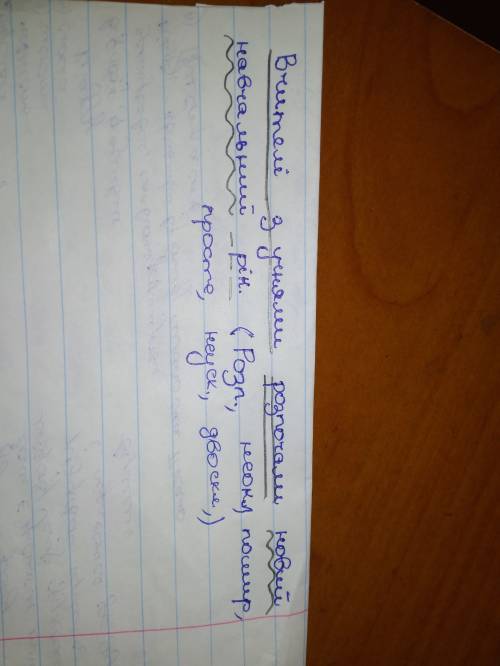 Вчителі з учнями розпочали новий
навчальний рік. (Розп., неокл, пошир,
просте, неуск., двоскл.)